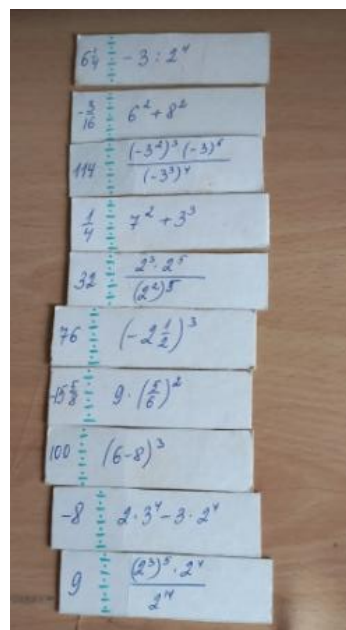 6 1/4 - 3 : 2⁴
-3/16 6² + 8²
114 (-3²)³ · (-3)⁶ / (-3³)⁴
1/4 7² + 3³
32 2³ · 2⁵ / (2²)⁵
76 (-2 1/2)³
-15 5/8 9 · (5/6)²
100 (6-8)³
-8 2 · 3⁴ - 3 · 2⁴
9 (2³)⁵ · 2⁴ / 2¹⁴